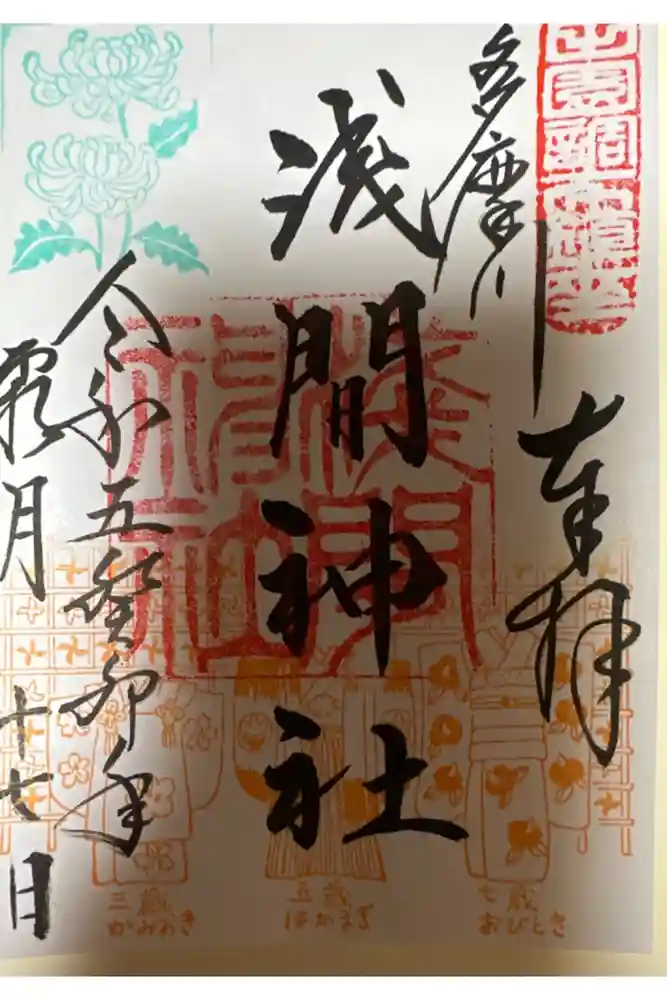 田園調布鎮座
奉拝
多摩川
浅間神社
令和五癸卯年
霜月十七日
三歳
かみおき
五歳
はかまぎ
七歳
おびとき